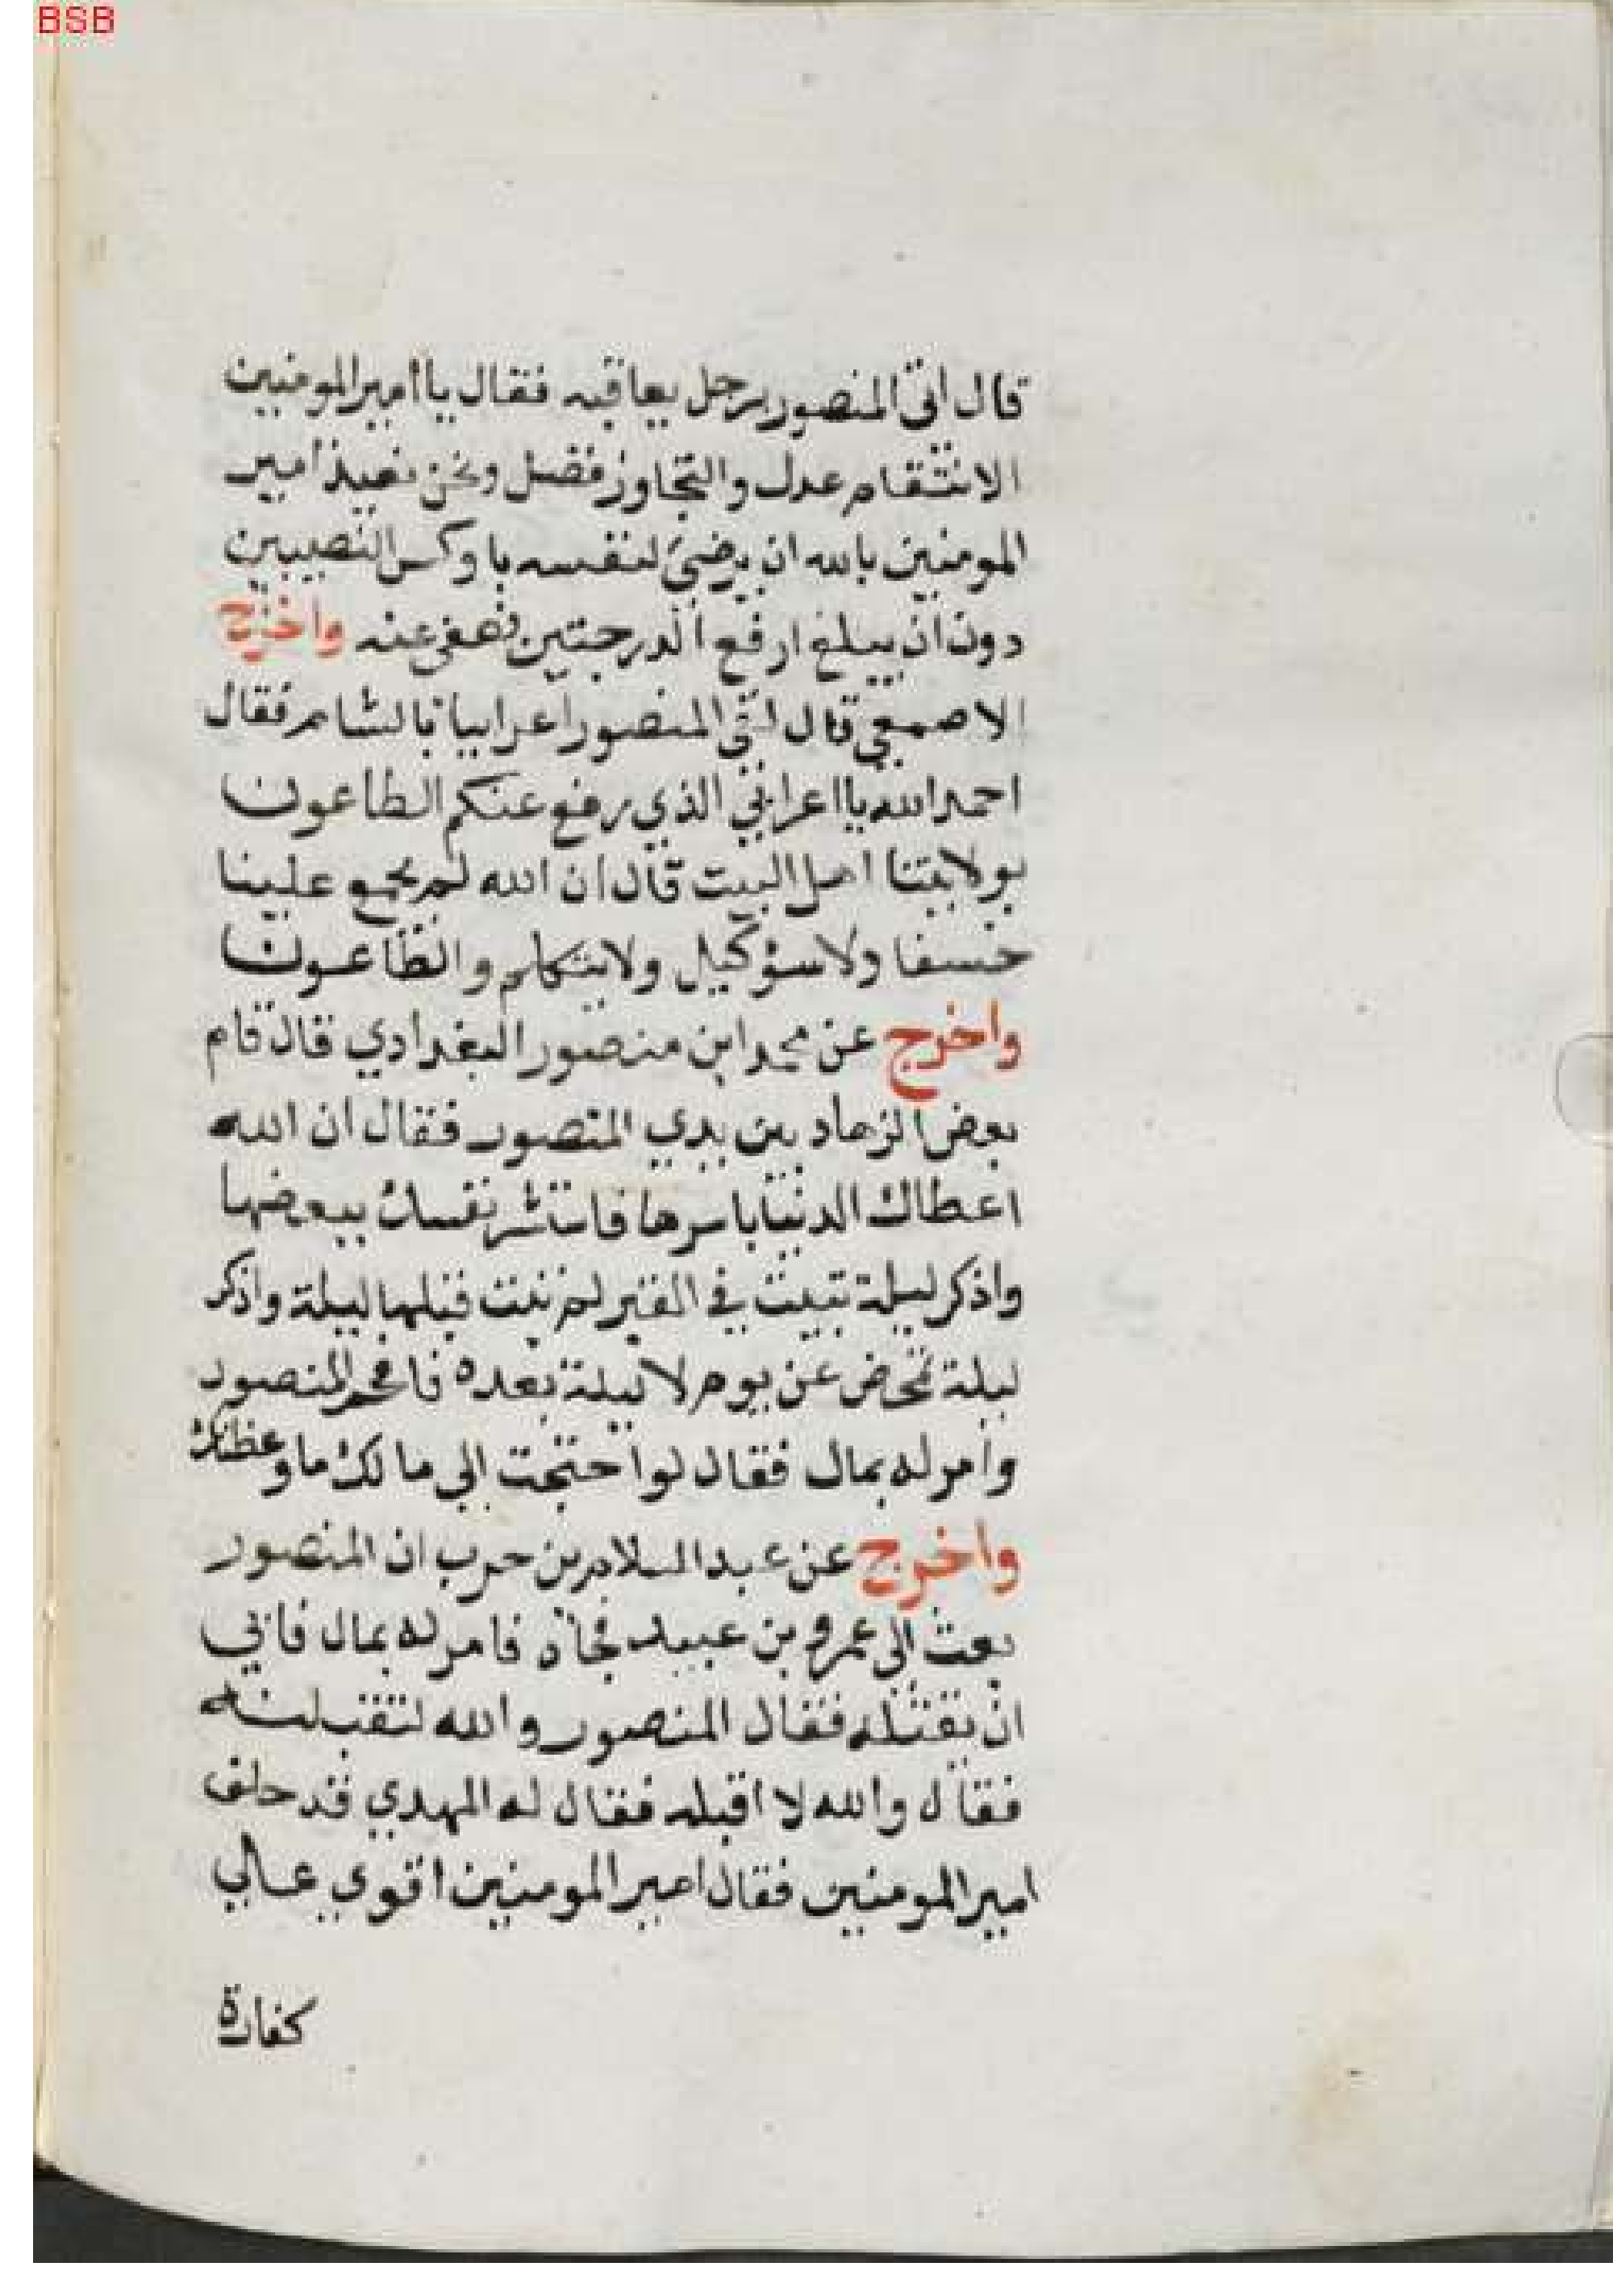 BSB
قال اتي المنصور برجل يعاقبه فقال يا أمير المومنين
الانتقام عدل والتجاوز فضل ونحن نعيذ أمير
المومنين بالله ان يرضى لنفسه باوكس النصيبين
دون ان يبلغ ارفع الدرجتين فعفى عنه واخرج
الاصمعي قال لقي المنصور اعرابيا بالشام فقال
احمد الله يا اعرابي الذي رفع عنكم الطاعون
بولايتنا اهل البيت قال ان الله لم يجمع علينا
خسفا ولا سؤ كيل ولايتكلم والطاعون
واخرج عن محمد ابن منصور البغدادي قال قام
بعض الزهاد بين يدي المنصور فقال ان الله
اعطاك الدنيا باسرها فاشتر نفسك ببعضها
واذكر ليلة تبيت في القبر لم تبت قبلها ليلة واذكر
ليلة تمخض عن يوم لا ليلة بعده فافحم المنصور
وامر له بمال فقال لو احتجت الي مالك ما وعظتك
واخرج عن عبد السلام بن حرب ان المنصور
بعث الى عمرو بن عبيد فجاه فامر له بمال فابي
ان يقتله فقال المنصور والله لتقبلنه
فقال والله لا اقبله فقال له المهدي قد حلف
امير المومنين فقال امير المومنين اقوي علي
كفارة